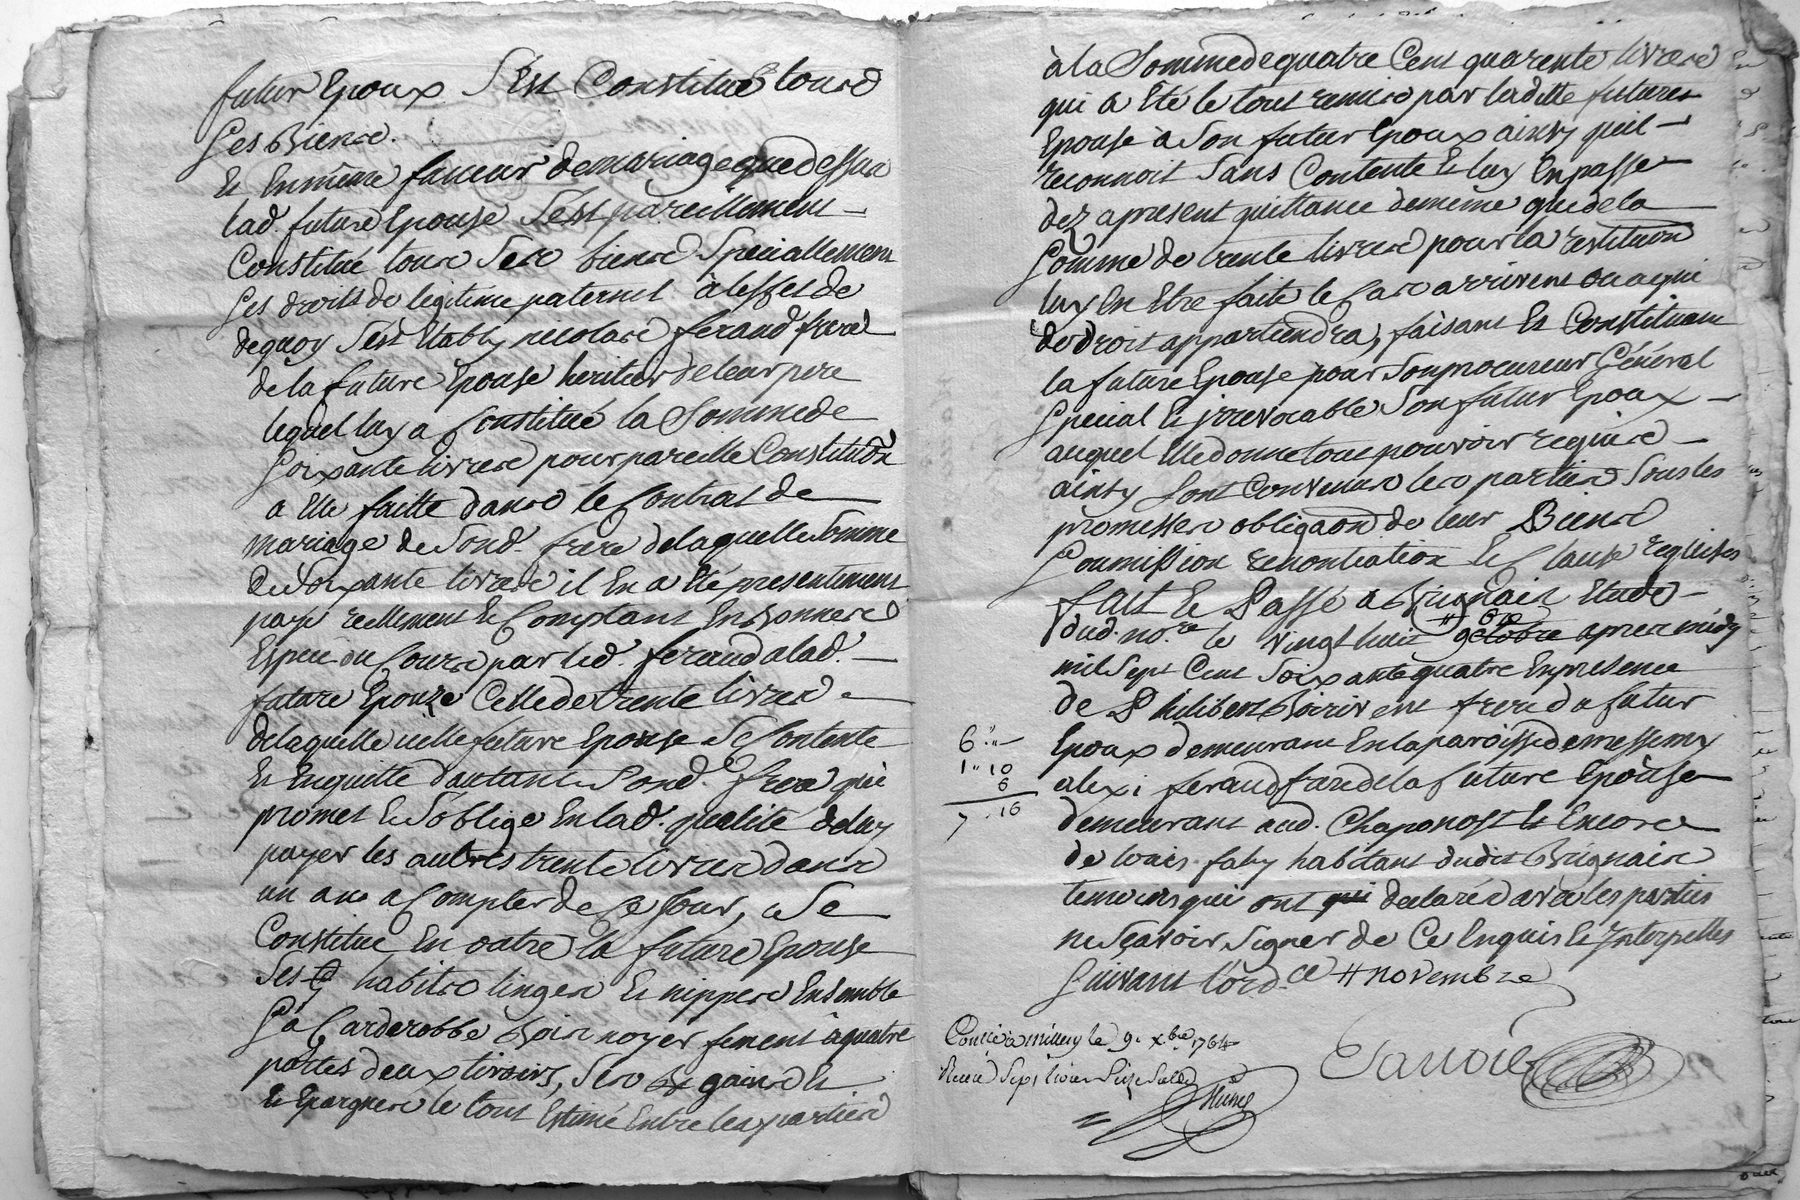 futur Epoux S'est Constitué tous
Ses Biens.
Et En même faveur de mariage que dessus
lad. future Epouse S'est pareillement
Constitué tous Ses biens Speciallement
Ses droits de legitime paternel à l'effet de
de quoy S'est Etably nicolas feraud frere
de la future Epouse heritier de leur pere
lequel luy a Constitué la Somme de
Soixante livres pour pareille Constitution
a Elle faitte dans le Contrat de
mariage de Sond. frere de laquelle Somme
de Soixante livres il En a Eté presentement
payé reellement Et Comptant En Bonnes
Espece du Cours par led. feraud a lad.
future Epouze Celle de trente livres
de laquelle icelle future Epouse Se Contente
Et En quitte d'autant Sond. frere qui
promet Et S'oblige En lad. qualité de luy
payer les autres trente livres dans
un ans a Compter de Ce Jour, Se
Constitue En outre la future Epouse
Ses habits linges Et nippes Ensemble
Sa Garderobbe Bois noyer fermant à quatre
portes deux tiroirs, Ses Bagues
Et Epargnes le tout Estimé Entre les parties
à la Somme de quatre Cent quarente livres
qui a Eté le tout remis par laditte future
Epouse à Son futur Epoux ainsy qu'il
reconnoit S'ans Contente Et luy En passe
dez a present quittance de même que de la
Somme de trente livres pour la restitution
luy En Etre faite le Cas arrivent ou a qui
de droit appartiendra, faisant Et Constituant
la future Epouse pour Son procureur Général
Special Et jrrevocable Son futur Epoux
auquel Elle donne tout pouvoir requis
ainsy Sont Convenus les parties Sous les
promesses obligaon de leur Biens
Soumission renontiation Et Clause requises
fait Et Passé a Brignais Etude
dud. no.re le vingt huit # 9bre octobre apres midy
mil Sept Cent Soixante quatre En presence
de Philibert Boiriven frere du futur
6 "
Epoux demeurant En la paroisse de messimy
1 " 10
alexi feraud frere de la future Epouse
6
7 . 16
demeurant aud. Chaponost Et Encore
de Louis faby habitant dudit Brignais
temoins qui ont qui declaré avec les parties
ne Scavoir Signer de Ce Enquis Et Interpellés
Suivant l'ord.ce # novembre
Controlé à millery le 9. xbre 1764
Reçu Sept livres Seize Sols